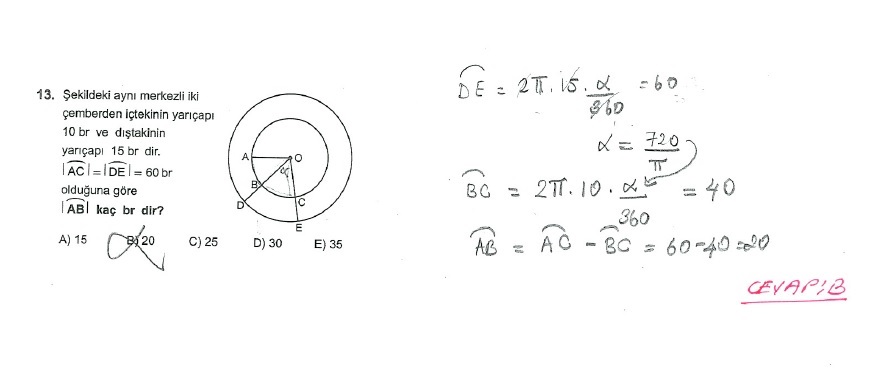 13. Şekildeki aynı merkezli iki
çemberden içtekinin yarıçapı
10 br ve dıştakinin
yarıçapı 15 br dir.
|AC| = |DE| = 60 br
olduğuna göre
|AB| kaç br dir?
A) 15 B) 20 C) 25 D) 30 E) 35
A O
α
B
C
D
E
DE = 2π.15.α/360 = 60
α = 720/π
BC = 2π.10.α/360 = 40
AB = AC - BC = 60-40=20
CEVAP:B